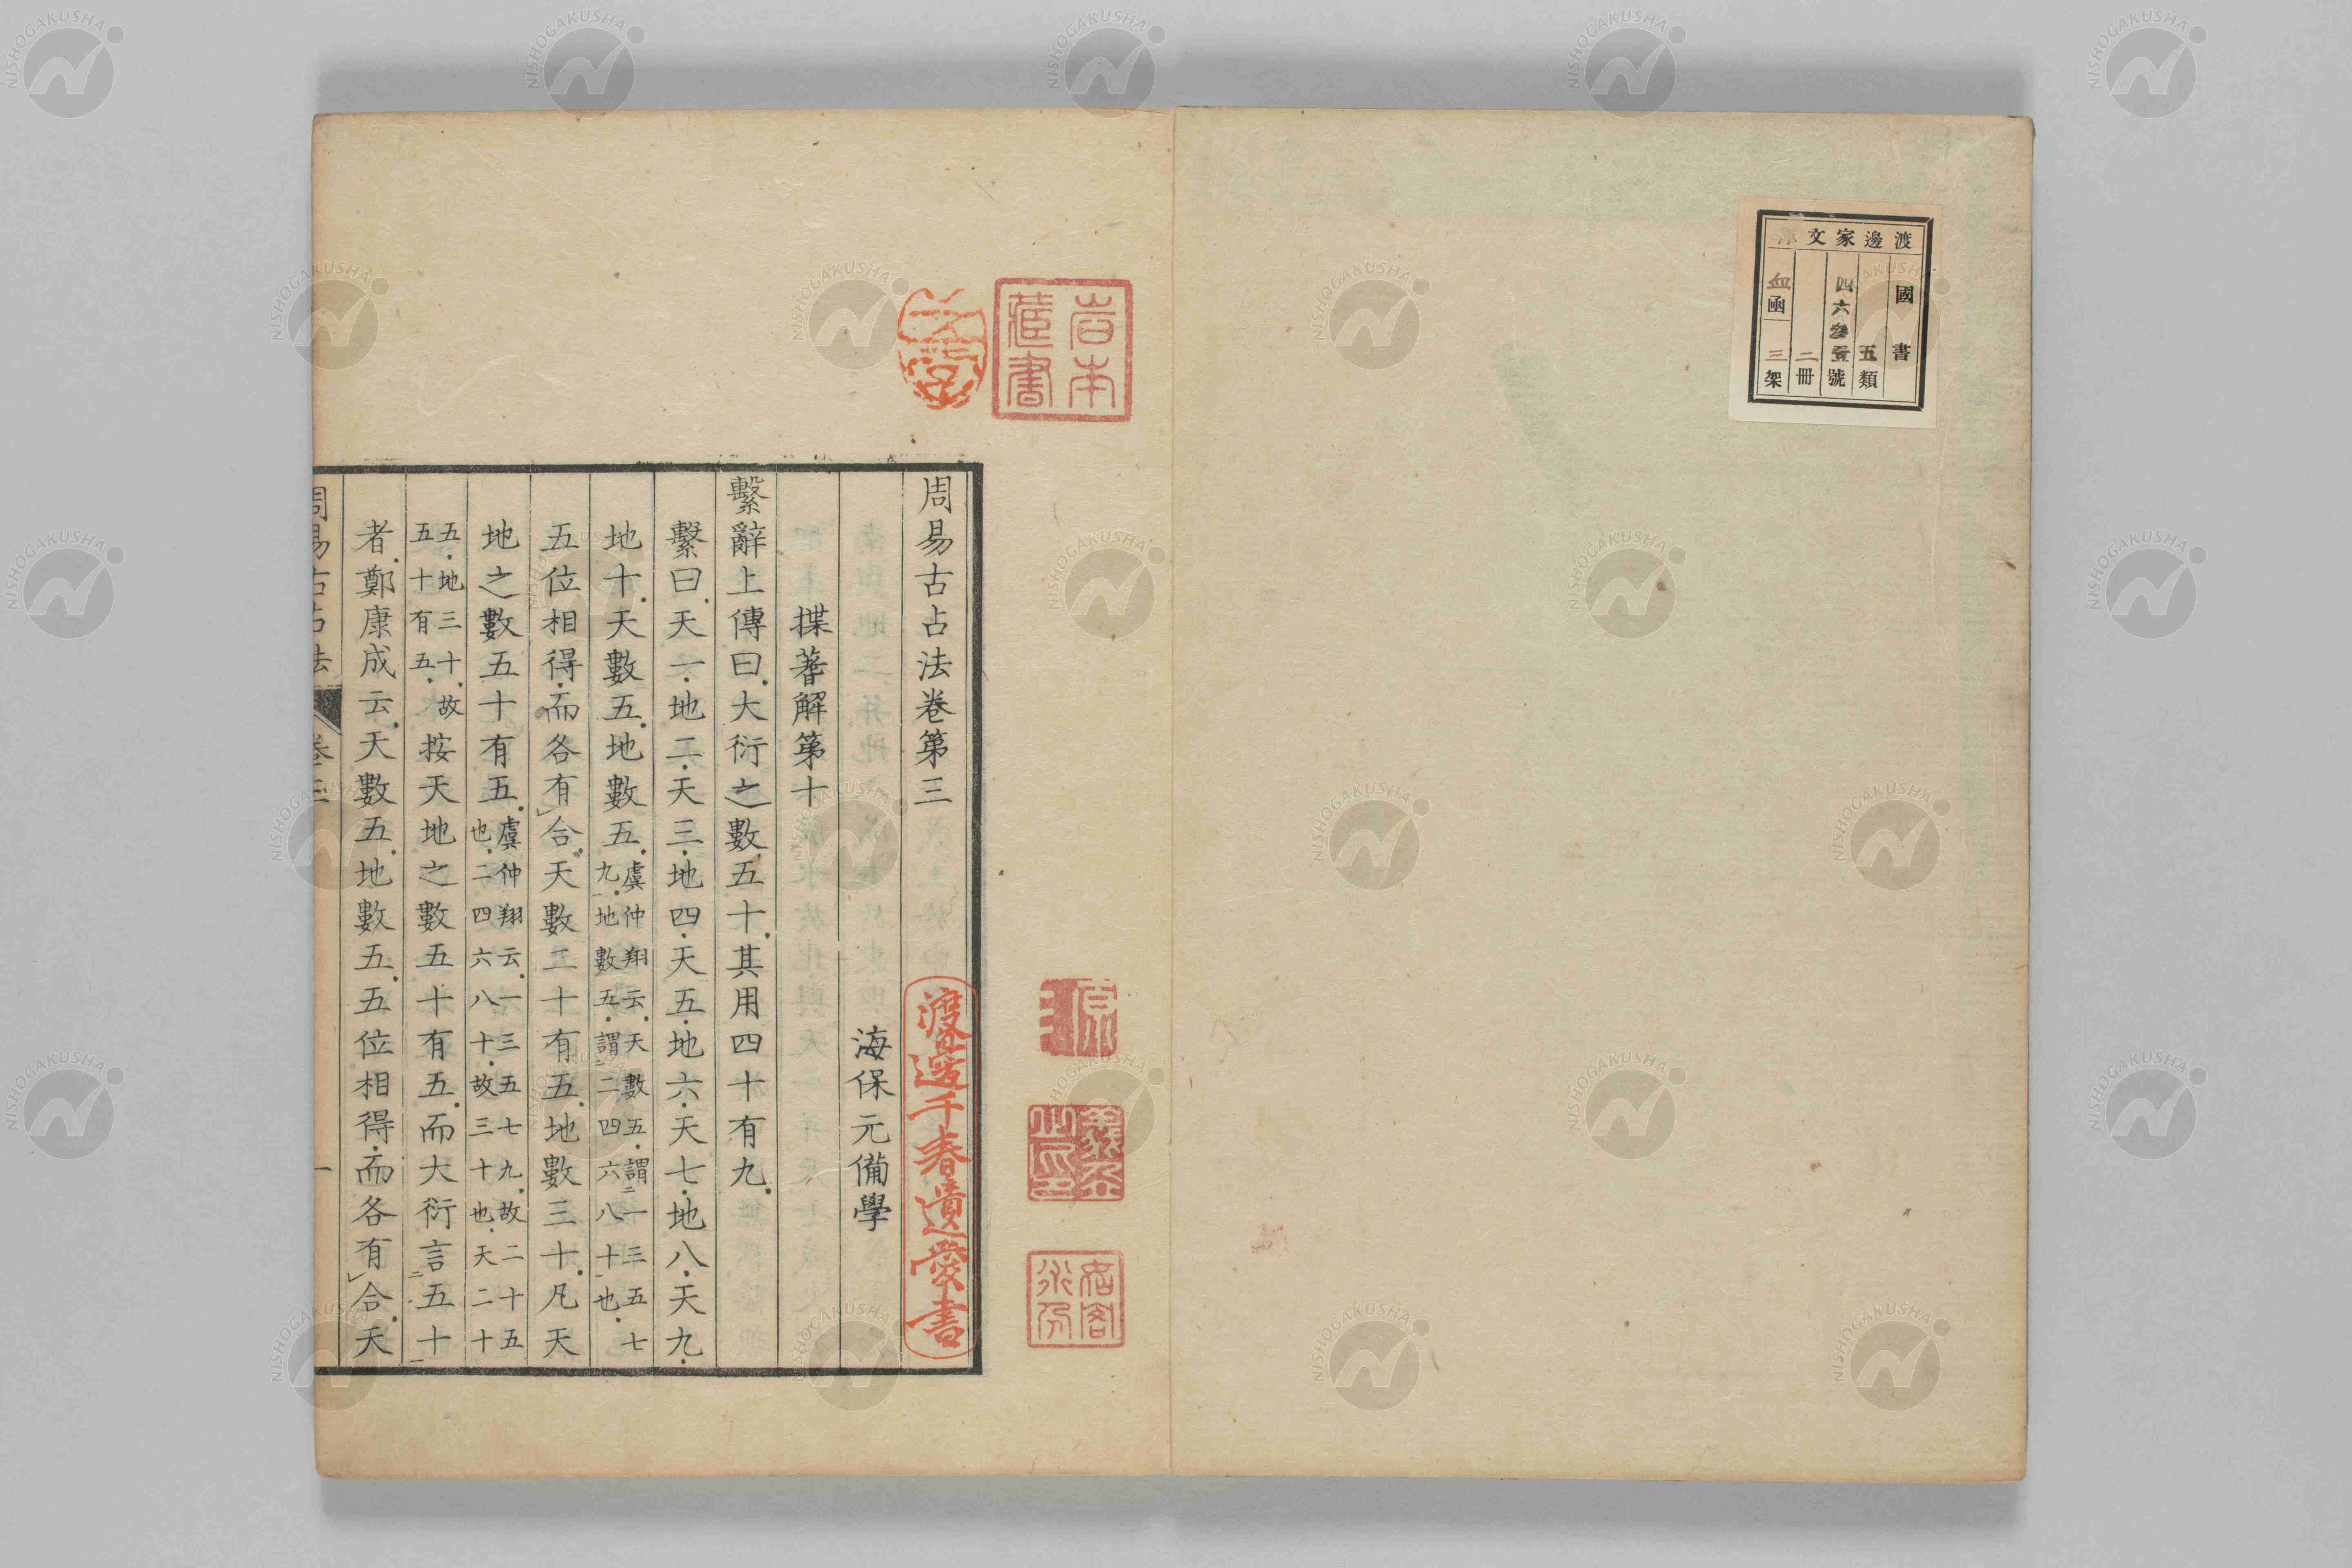 渡邊家文庫
國書
五類
四六參壹號
二冊
血函
三架
岩本
藏書
渡邊千春遺愛書
周易古占法卷第三
海保元備學
揲蓍解第十
繫辭上傳曰大衍之數五十其用四十有九
繫曰天一地二天三地四天五地六天七地八天九
地十天數五地數五虞仲翔云天數五謂一三五七
九地數五謂二四六八十也
五位相得而各有合天數二十有五地數三十凡天
地之數五十有五虞仲翔云一三五七九故二十五
也二四六八十故三十也天二十
五地三十故
五十有五按天地之數五十有五而大衍言五十
者鄭康成云天數五地數五五位相得而各有合天
周易古占法
卷三
一
NISHOGAKUSHA